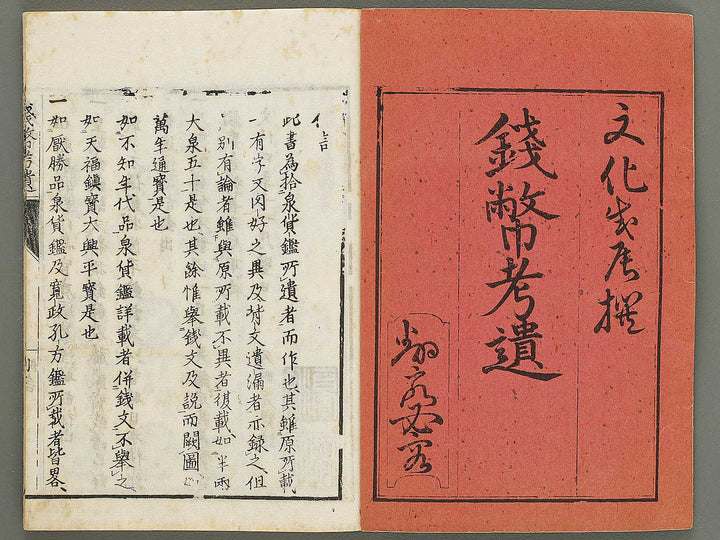 文化戊辰撰
錢幣考遺
此書為拾泉貨鑑所遺者而作也其雖原所載
一有字文肉好之異及背文遺漏者亦録之但
別有論者雖與原所載不異者復載如半兩
大泉五十是也其餘惟舉錢文及説而闕圖
萬年通寳是也
如不知年代品泉貨鑑詳載者併錢文不舉之
如天福鎮寳大興平寳是也
一如厭勝品泉貨鑑及寛政孔方鑑所載者皆畧